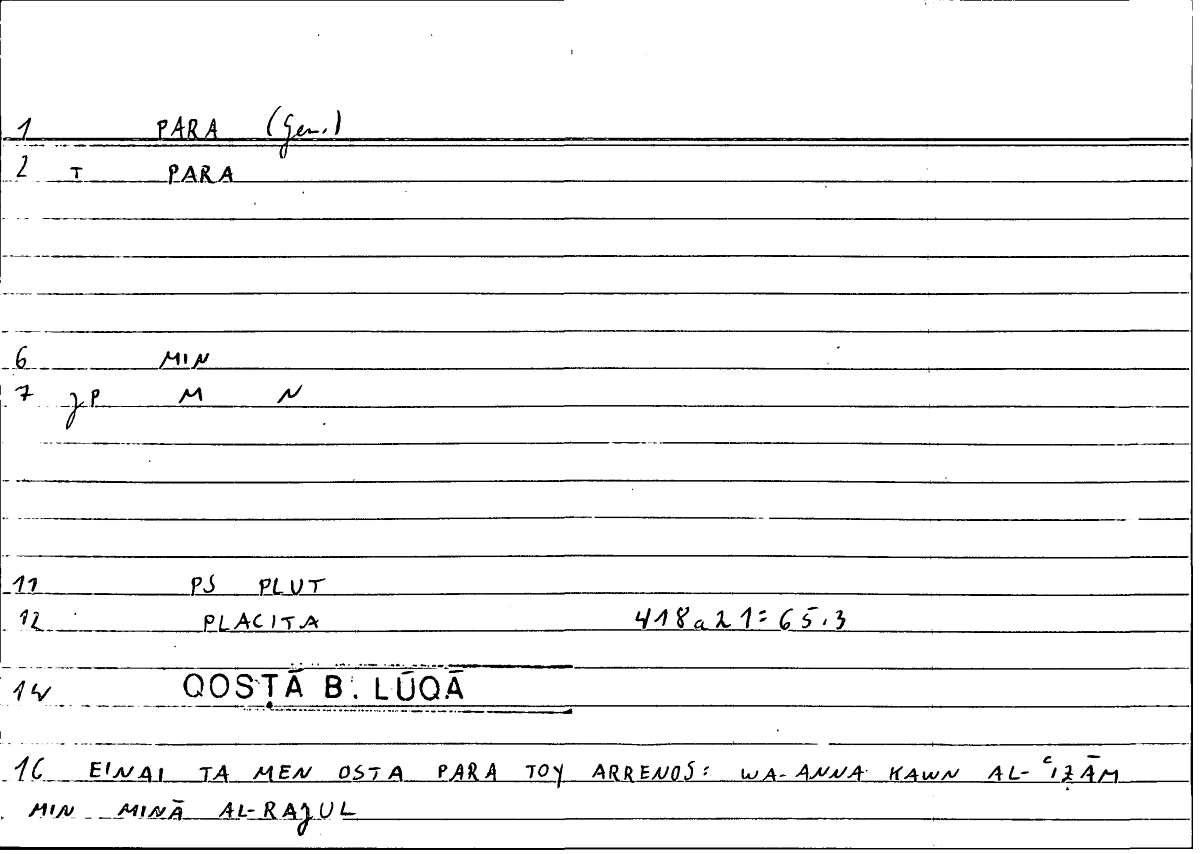 1 PARA (Gen.)
2 T PARA
6 MIN
7 JP M N
11 PS PLUT
12 PLACITA 418a21=65.3
14 QOSṬĀ B. LŪQĀ
16 EINAI TA MEN OSTA PARA TOY ARRENOS: WA-ANNA KAWN AL-ʿIẒĀM
MIN MINĀ AL-RAJUL